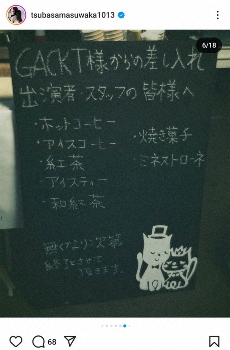 tsubasamasuwaka1013
6/18
GACKT様からの差し入れ
出演者 スタッフの皆様へ
・ホットコーヒー
・アイスコーヒー
・紅茶
・アイスティー
・和紅茶
・焼き菓子
・ミネストローネ
無くなり次第
終了とさせて
頂きます。
68